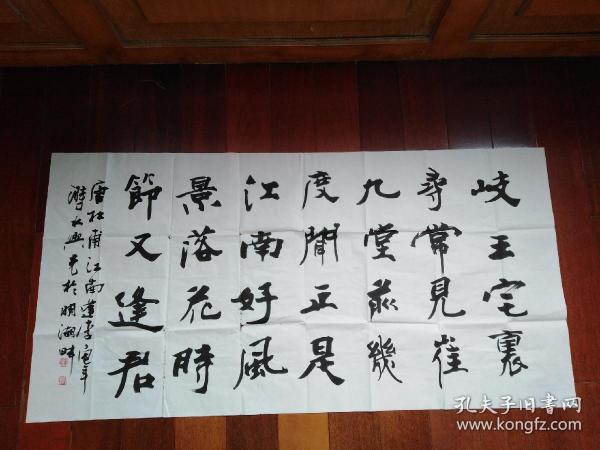 岐王宅裏
尋常見崔
九堂前幾
度聞正是
江南好風
景落花時
節又逢君
唐杜甫江南逢李龜年
於明湖畔
孔夫子旧书网
www.kongfz.com